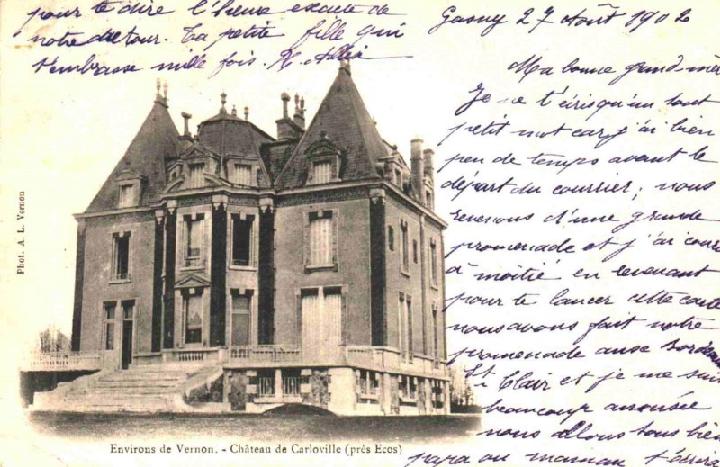 Gasny 27 Août 1902
Ma bonne grand-mère
Je ne t'écris qu'un tout
petit mot car j'ai bien
peu de temps avant le
départ du courrier; nous
revenons d'une grande
promenade et j'ai couru
à moitié en revenant
pour te lancer cette carte
nous avons fait notre
promenade
St Clair et je me suis
beaucoup amusée
nous allons tous bien
papa ou maman t'écrira
pour te dire l'heure exacte de
notre retour. Ta petite fille qui
t'embrasse mille fois.
Phot. A. L. Vernon
Environs de Vernon. - Château de Carloville (près Ecos)